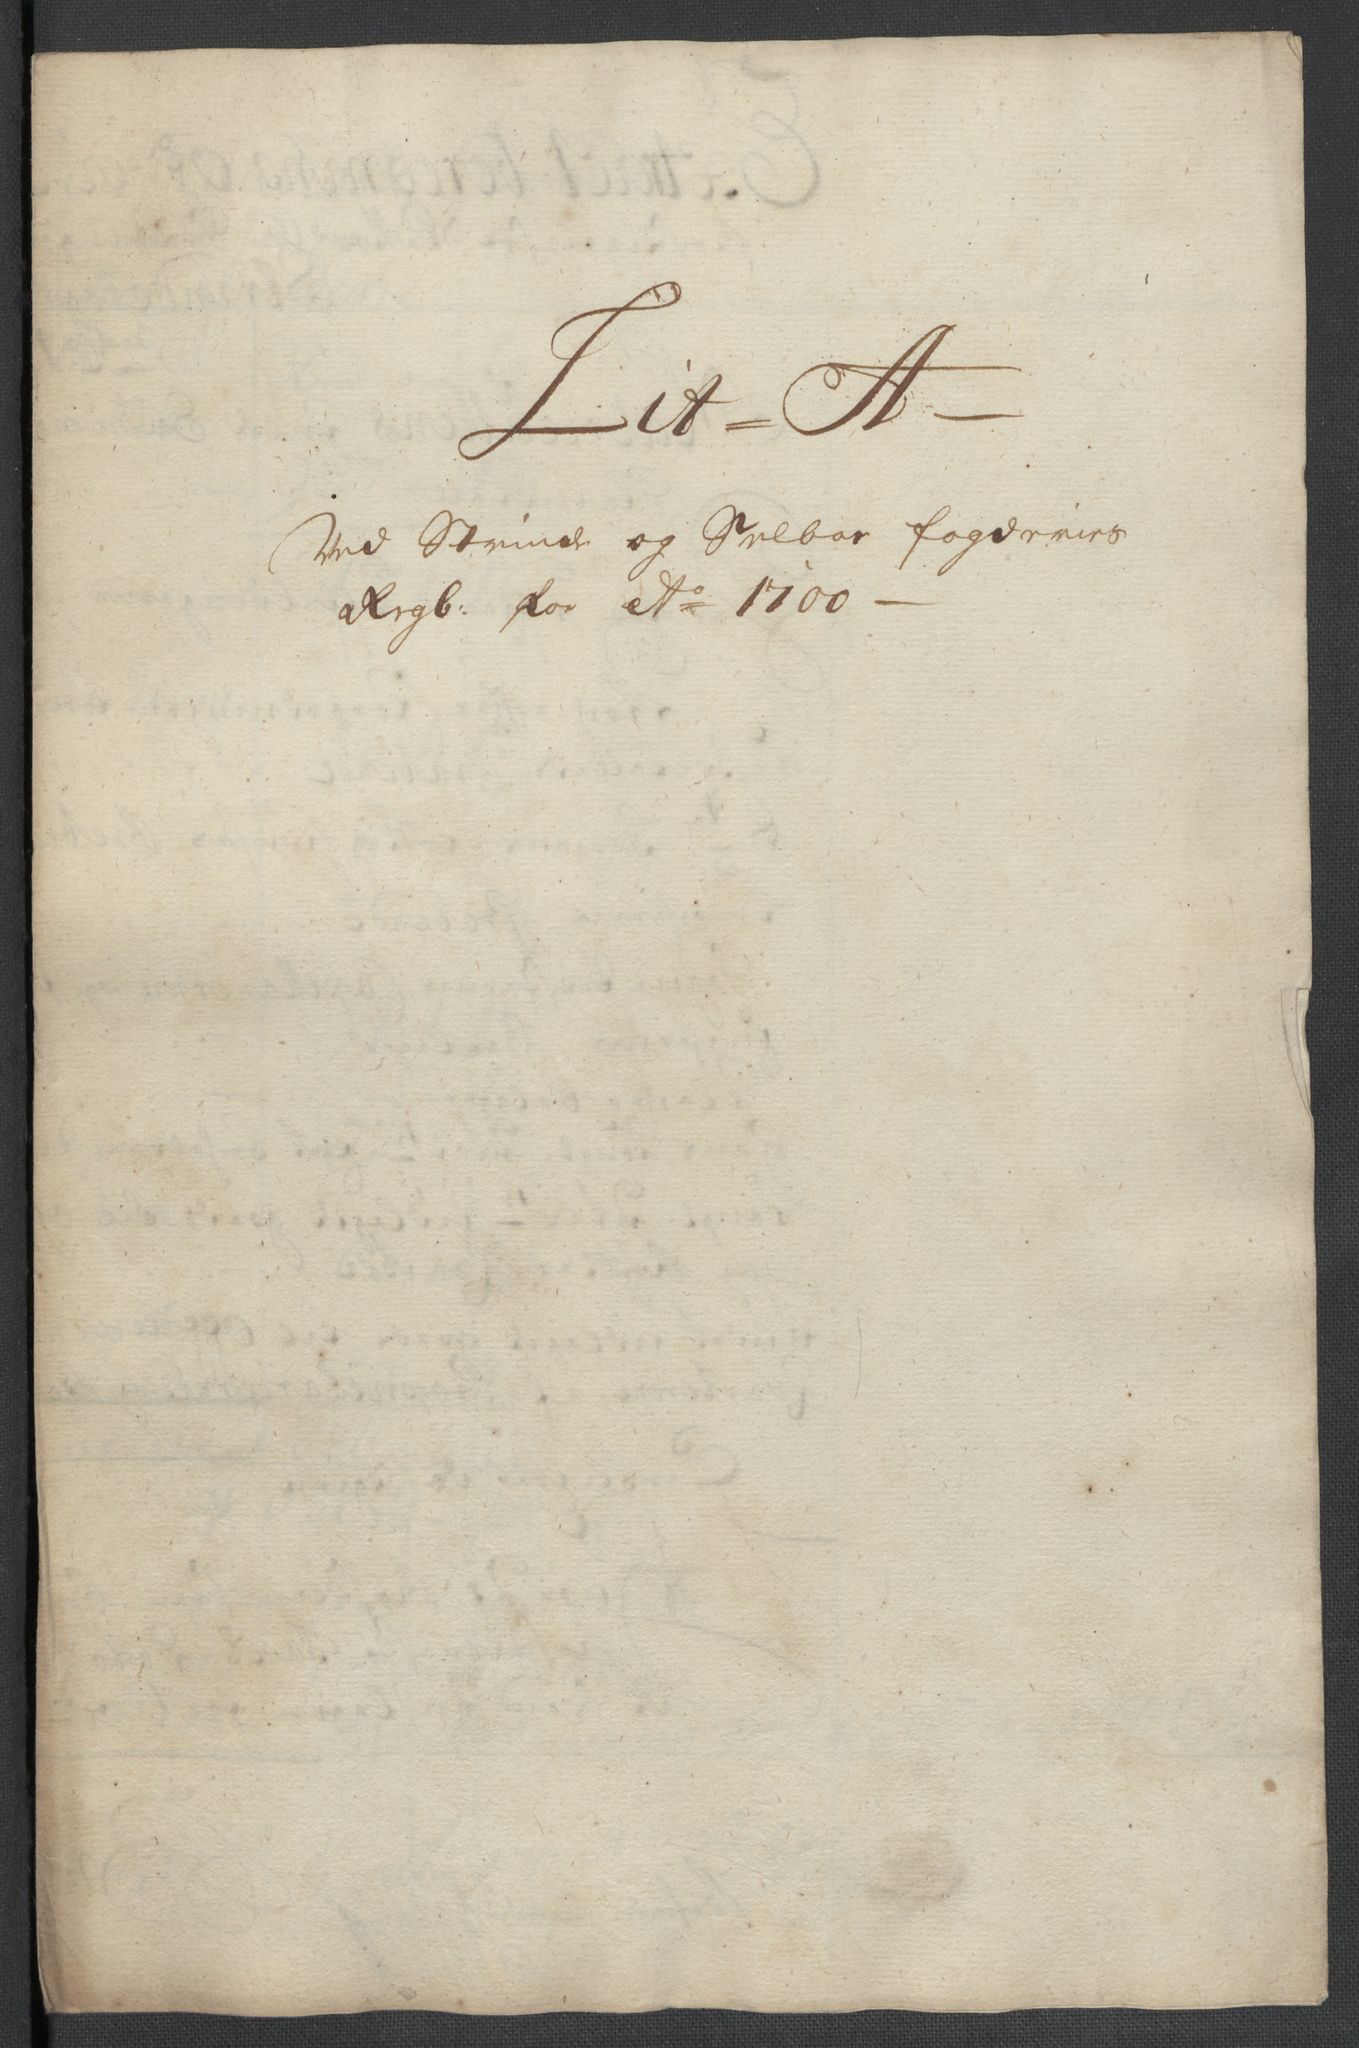 Lit = A
Ved Strinde og Selboe fogderies
Regb: for Ao 1700